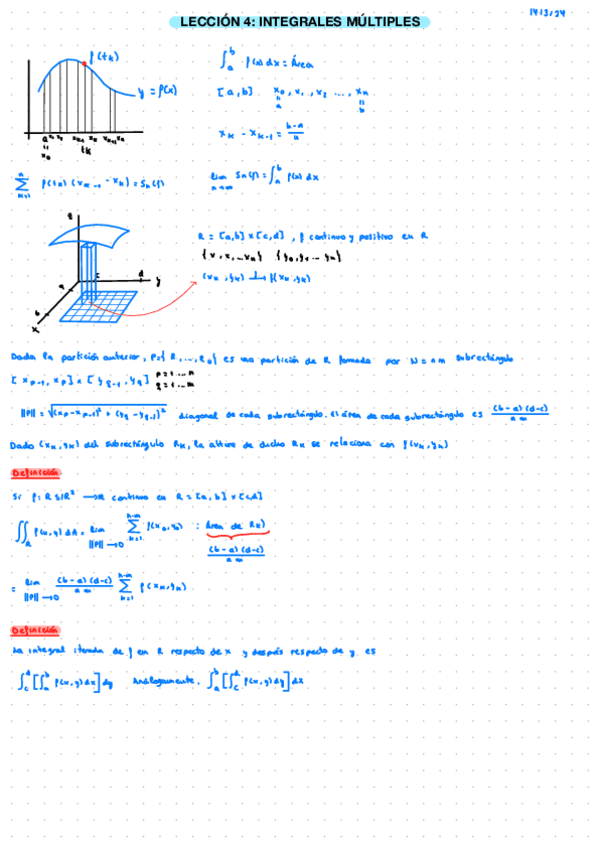 14/3/24
LECCIÓN 4: INTEGRALES MÚLTIPLES
f(tk)
y = f(x)
∫_a^b f(x) dx = Área
[a, b] x₀, x₁, x₂ ..., xₙ
a b
xₖ - xₖ₋₁ = (b-a)/n
∑_{k=1}^n f(tₖ) (xₖ₋₁ - xₖ) = Sₙ(f)
lim_{n→∞} Sₙ(f) = ∫_a^b f(x) dx
R = [a,b] x [c,d], f continua y positiva en R
{x, x, ... xₙ} {y₀, y₁ ... yₙ}
(xₖ, yₖ) → f(xₖ, yₖ)
Dada la partición anterior, P={R, ..., Rₙ} es una partición de R formada por N = n m subrectángulo
[xₚ₋₁, xₚ] x [y_{q-1}, y_q] p = 1 ... n
q = 1 ... m
||P|| = √((xₚ - xₚ₋₁)² + (y_q - y_{q-1})²) diagonal de cada subrectángulo. El área de cada subrectángulo es (b-a)(d-c)/n m
Dado (xₖ, yₖ) del subrectángulo Rₖ, la altura de dicho Rₖ se relaciona con f(xₖ, yₖ)
Definición
Si f: R ⊆ ℝ² → ℝ continua en R = [a, b] x [c,d]
∬_R f(x,y) dA = lim_{||P||→0} ∑_{k=1}^{n·m} f(xₖ, yₖ) · Área de Rₖ)
(b-a)(d-c)/n m
= lim_{||P||→0} (b-a)(d-c)/n m ∑_{k=1}^{n·m} f(xₖ, yₖ)
Definición
La integral iterada de f en R respecto de x y después respecto de y es
∫_c^d [∫_a^b f(x,y) dx] dy Análogamente, ∫_a^b [∫_c^d f(x,y) dy] dx